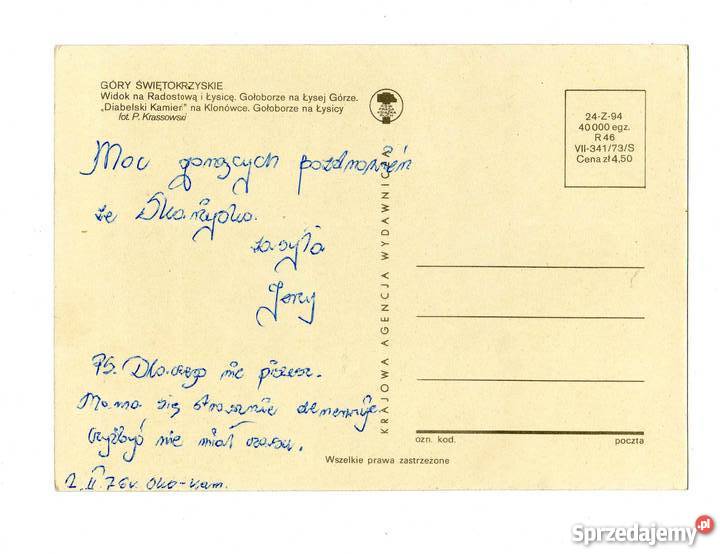 GÓRY ŚWIĘTOKRZYSKIE
Widok na Radostową i Łysicę. Gołoborze na Łysej Górze.
„Diabelski Kamień" na Klonówce. Gołoborze na Łysicy
fot. P. Krassowski
24-Z-94
40 000 egz.
R 46
VII-341/73/S
Cena zł 4,50
Moc gorących pozdrowień
ze Skarżyska
zasyła
Jerzy
PS. Dlaczego nie piszesz.
Mama się strasznie denerwuje
czyżbyś nie miał czasu.
2.II.76r.
KRAJOWA AGENCJA WYDAWNICZA
ozn. kod.
poczta
Wszelkie prawa zastrzeżone
Sprzedajemy.pl